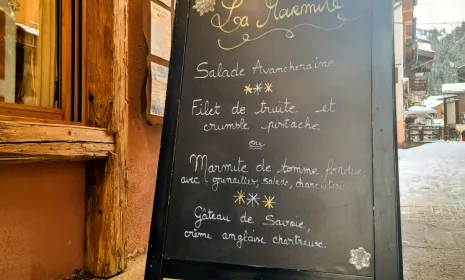 La Marmite
Salade Avancheraine
Filet de truite et
crumble pistache
ou
Marmite de tomme fondue
avec grenailles, salade, charcuterie
Gâteau de Savoie,
crème anglaise chartreuse